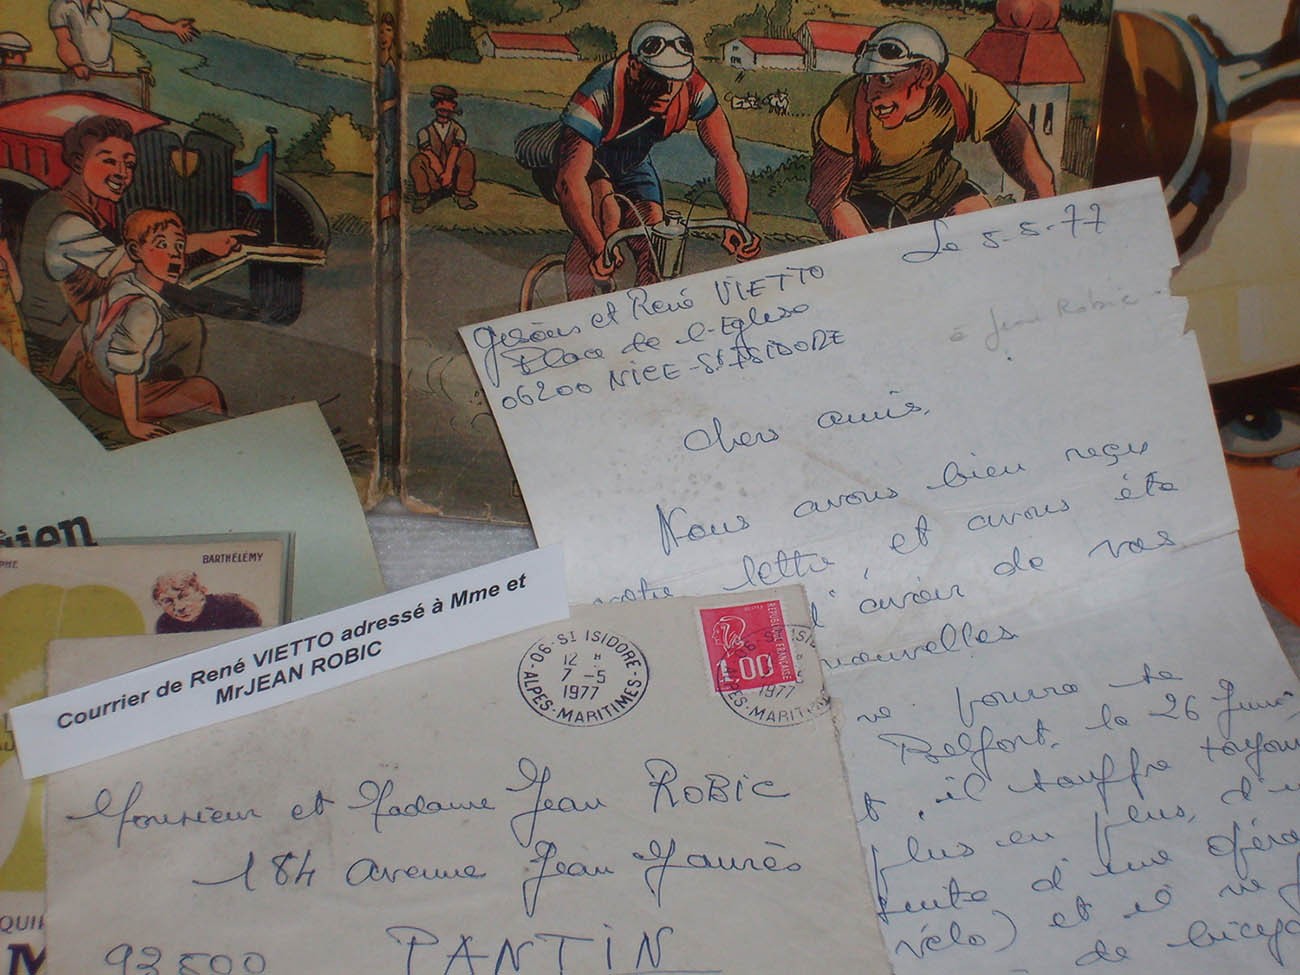 Le 5-5-77
et René VIETTO
Place de l-Eglise
06200 NICE-St ISIDORE
à Jean Robic
Chers amis,
Nous avons bien reçu
votre lettre et avons été
d'avoir de vos
nouvelles
ne pourra se
Belfort, le 26 Juin,
il souffre toujours
plus en plus, d'u
suite d'une opéra
vélo) et il ne
de bicyc
ien
PHE
BARTHÉLEMY
Courrier de René VIETTO adressé à Mme et
MrJEAN ROBIC
06-St ISIDORE
12 H
7 -5
1977
ALPES-MARITIMES
REPUBLIQUE FRANÇAISE
1,00
Monsieur et Madame Jean ROBIC
184 avenue Jean Jaurès
93500 PANTIN
QUI
M